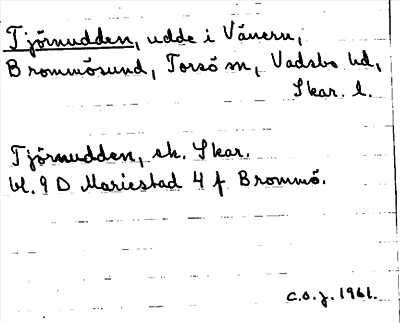 Tjörnudden, udde i Vänern,
Brommösund, Torsö sn, Vadsbo hd,
Skar. l.
Tjörnudden, ek. Skar.
bl. 9 D Mariestad 4 f Brommö.
c.o.j. 1961.